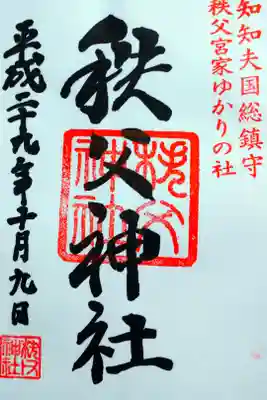 知知夫国総鎮守
秩父宮家ゆかりの社
秩父神社
平成二十九年十月九日
秩父
神社
秩父
神社